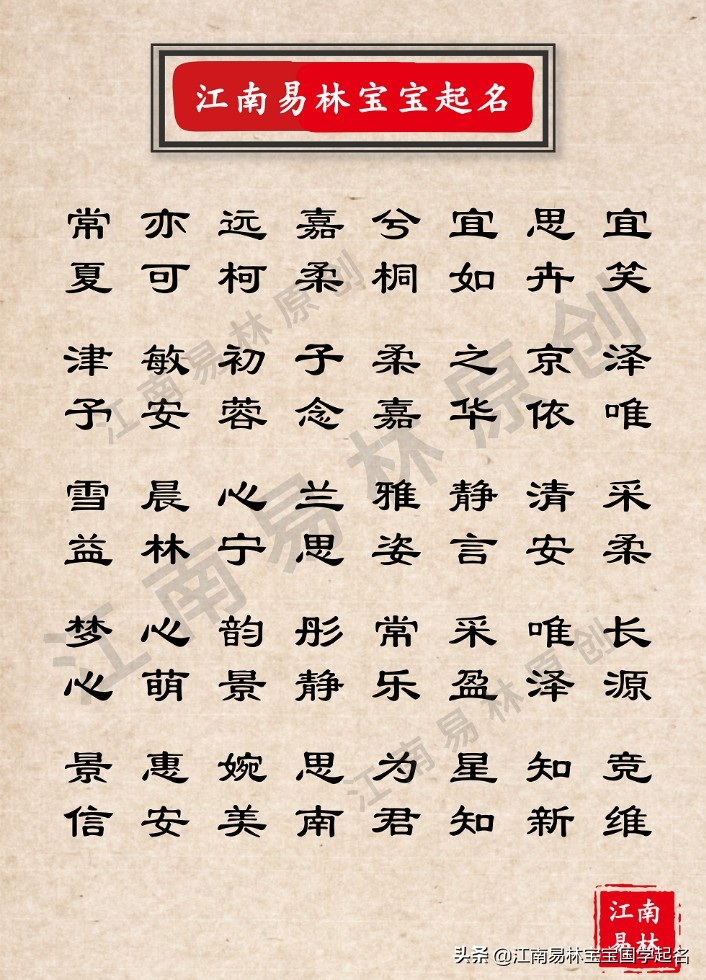 江南易林宝宝起名
常 亦 远 嘉 兮 宜 思 宜
夏 可 柯 柔 桐 如 卉 笑
津 敏 初 子 柔 之 京 泽
予 安 蓉 念 嘉 华 依 唯
雪 晨 心 兰 雅 静 清 采
益 林 宁 思 姿 言 安 柔
梦 心 韵 彤 常 采 唯 长
心 萌 景 静 乐 盈 泽 源
景 惠 婉 思 为 星 知 竞
信 安 美 南 君 知 新 维
江南易林原创
江南易林原创
江南易林原创
江南
易林
头条 @江南易林宝宝国学起名